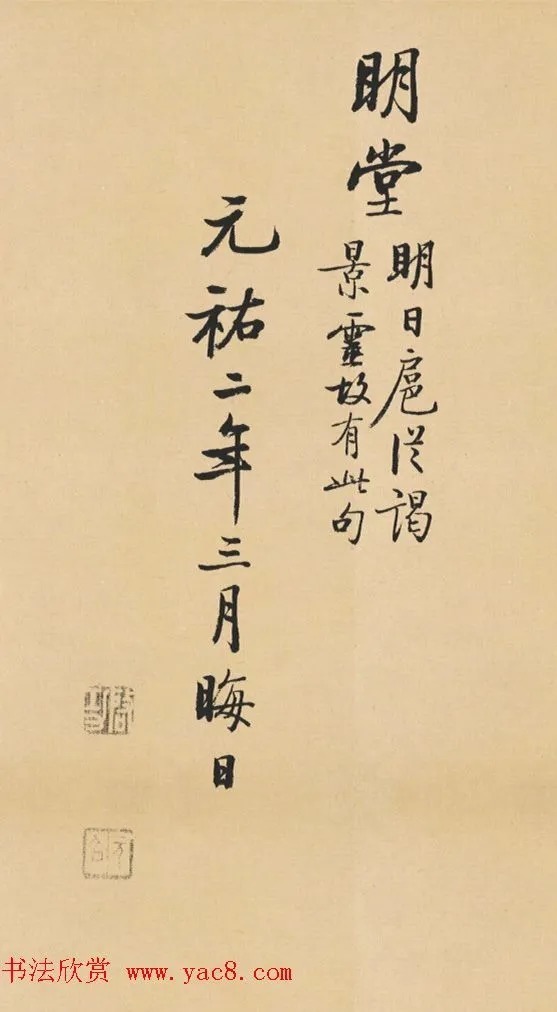 明堂
明日扈從謁
景靈故有此句
元祐二年三月晦日
书法欣赏 www.yac8.com